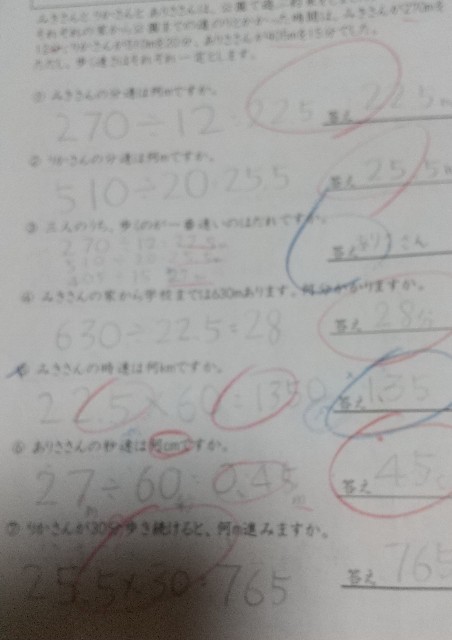 みきさんと りかさんと ありささんは、公園で遊ぶ約束をし
それぞれの家から公園までの道のりとかかった時間は、みきさんが270mを
12分、りかさんが510mを20分、ありささんが405mを15分でした。
ただし、歩く速さはそれぞれ一定とします。
① みきさんの分速は何mですか。
270÷12=22.5
答え 22.5m
② りかさんの分速は何mですか。
510÷20=25.5
答え 25.5m
③ 三人のうち、歩くのが一番速いのはだれですか。
270÷12=22.5m
510÷20=25.5m
405÷15 27m
答え ありささん
④ みきさんの家から学校までは630mあります。何分かかりますか。
630÷22.5=28
答え 28分
⑤ みきさんの時速は何kmですか。
22.5×60=1350
答え 1.35
⑥ ありささんの秒速は何cmですか。
27÷60=0.45
答え 45c
⑦ りかさんが30分歩き続けると、何m進みますか。
25.5×30=765
答え 765